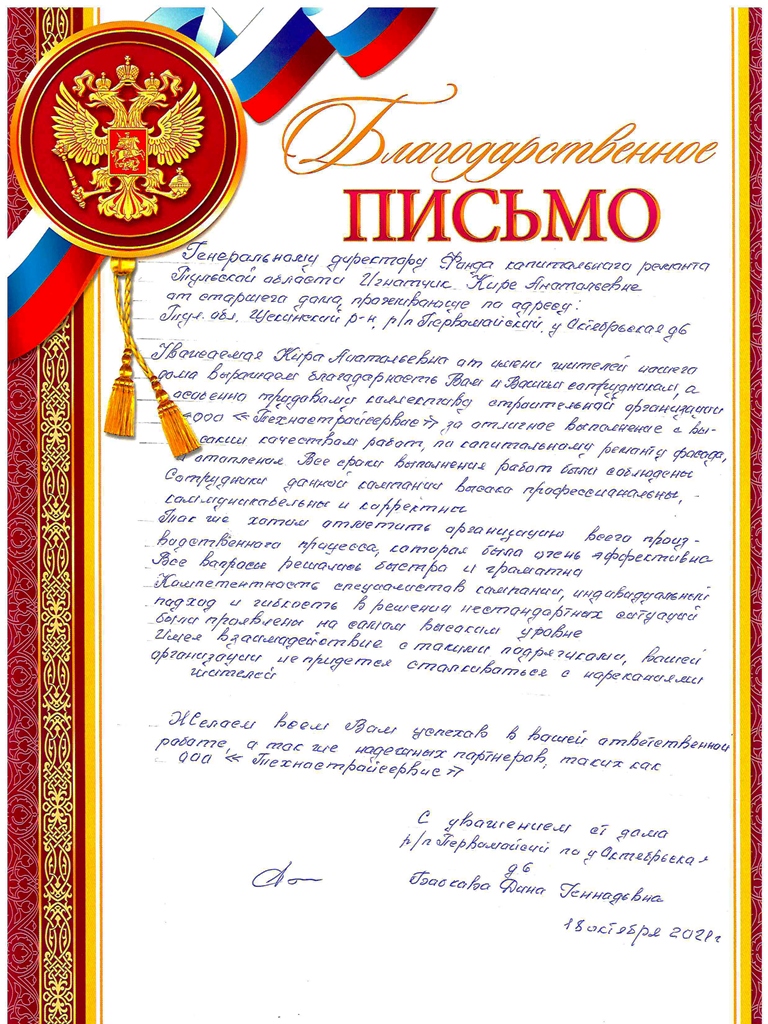 Благодарственное
ПИСЬМО
Генеральному директору Фонда капитального ремонта
Тульской области Игнатчик Кире Анатольевне
от старшего дома, проживающе по адресу:
Тул. обл, Щекинский р-н, р/п Первомайский, у Октябрьская д6
Уважаемая Кира Анатольевна от имени жителей нашего
дома выражаем благодарность Вам и Вашим сотрудникам, а
особенно трудовому коллективу строительной организации
ООО «Технастрайсервис» за отличное выполнение с вы-
соким качеством работ, по капитальному ремонту фасада,
и отопления Все сроки выполнения работ были соблюдены
Сотрудники данной компании высоко профессиональны,
коммуникабельны и корректны
Так же хотим отметить организацию всего произ-
водственного процесса, которая была очень эффективна
Все вопросы решались быстро и граматно
Компетентность специалистов кампании, индивидуальный
подход и гибкость в решении нестандартных ситуаций
были проявлены на самом высоком уровне
Имея взаимадействие с такими подрядчиками, вашей
организации не придется сталкиваться с нареканиями
жителей
Желаем всем Вам успехов в вашей ответственной
работе, а так же надежных партнеров, таких как
ООО «Технастрайсервис»
С уважением от дома
р/п Первомайский по у Октябрьская
д6
Баскова Дина Геннадьевна
18 октября 2021г